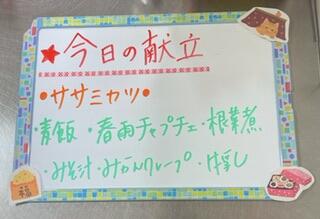 ★今日の献立
•ササミカツ•
•麦飯 •春雨チャプチェ •根菜煮
•みそ汁 •みかんクレープ •牛乳
福